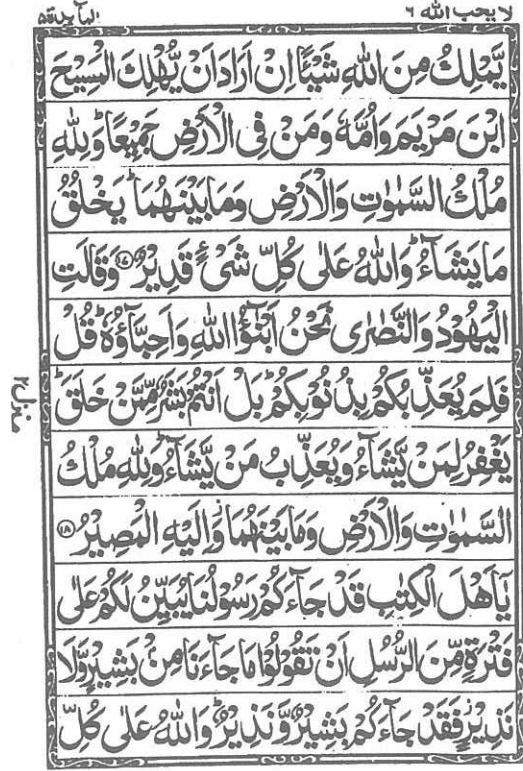 لا يحب الله ٦ المآئدة ٥
يَّمْلِكُ مِنَ اللّٰهِ شَيْـًٔا اِنْ اَرَادَ اَنْ يُّهْلِكَ الْمَسِيْحَ
ابْنَ مَرْيَمَ وَاُمَّهٗ وَمَنْ فِى الْاَرْضِ جَمِيْعًا ؕ وَلِلّٰهِ
مُلْكُ السَّمٰوٰتِ وَالْاَرْضِ وَمَا بَيْنَهُمَا ؕ يَخْلُقُ
مَا يَشَآءُ ؕ وَاللّٰهُ عَلٰى كُلِّ شَىْءٍ قَدِيْرٌ ﴿١٧﴾ وَقَالَتِ
الْيَهُوْدُ وَالنَّصٰرٰى نَحْنُ اَبْنٰٓؤُا اللّٰهِ وَاَحِبَّآؤُهٗ ؕ قُلْ
فَلِمَ يُعَذِّبُكُمْ بِذُنُوْبِكُمْ ؕ بَلْ اَنْتُمْ بَشَرٌ مِّمَّنْ خَلَقَ ؕ
يَغْفِرُ لِمَنْ يَّشَآءُ وَيُعَذِّبُ مَنْ يَّشَآءُ ؕ وَلِلّٰهِ مُلْكُ
السَّمٰوٰتِ وَالْاَرْضِ وَمَا بَيْنَهُمَا ؗ وَاِلَيْهِ الْمَصِيْرُ ﴿١٨﴾
يٰٓاَهْلَ الْكِتٰبِ قَدْ جَآءَكُمْ رَسُوْلُنَا يُبَيِّنُ لَكُمْ عَلٰى
فَتْرَةٍ مِّنَ الرُّسُلِ اَنْ تَقُوْلُوْا مَا جَآءَنَا مِنْۢ بَشِيْرٍ وَّلَا
نَذِيْرٍ ؗ فَقَدْ جَآءَكُمْ بَشِيْرٌ وَّنَذِيْرٌ ؕ وَاللّٰهُ عَلٰى كُلِّ
منزل ٢